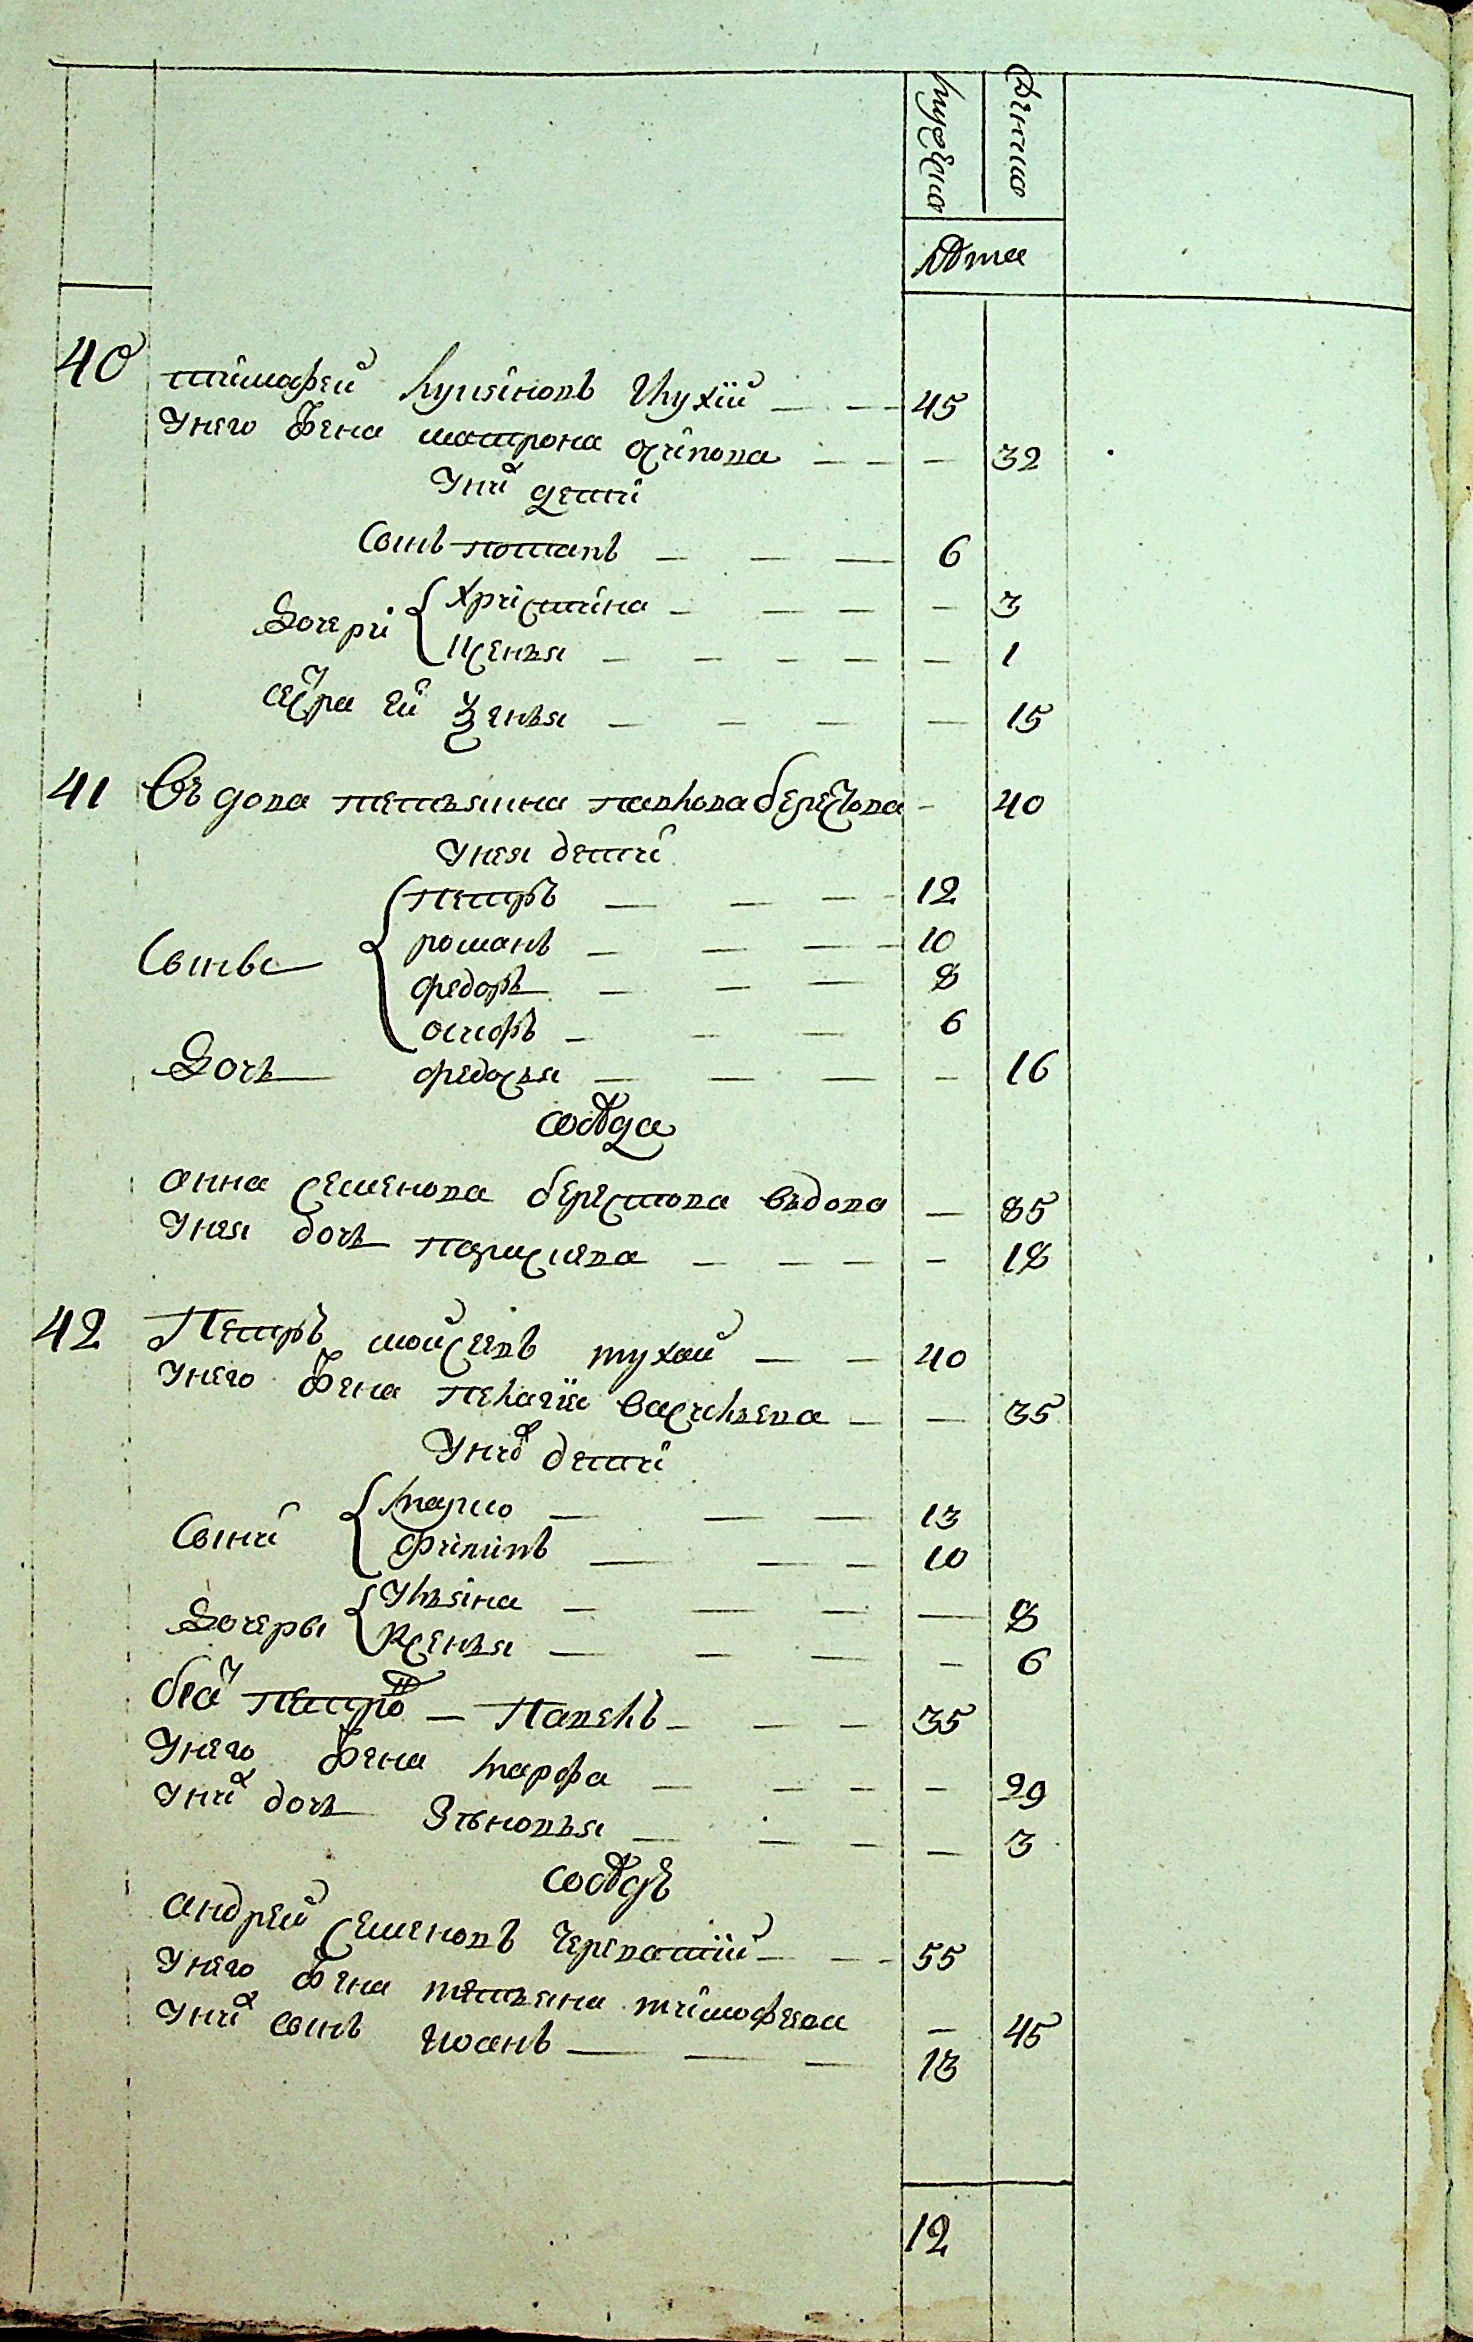 мужеска
женска
лѣта
40 тимофеи лукяновъ глухїи — — 45
унего жена матрона осипова — — — 32
уних дети
Сынъ потапъ — — — 6
Дочери { христина — — — — 3
ксенья — — — — — 1
сестра ей ѯенья — — — — 15
41 Въдова татьяна павлова берестова — 40
унея дети
Сынѣ { петръ — — — 12
романъ — — — 10
федоръ — — — 8
осифъ — — — 6
Дочь федосья — — — — 16
сосѣда
анна семенова берестова въдова — 85
унея дочь — — — — 18
42 Петръ мойсеевъ глухой — — 40
унего жена пелагїя васильева — — 35
уних дети
Сыни { марко — — — 13
филипъ — — — 10
Дочеры { ульяна — — — — 8
ксенья — — — — 6
брат петров — Павелъ — — — 35
унего жена марфа — — — — 29
уних дочь Зѣновья — — — — 3
сосѣдъ
андрей семеновъ череватїй — — 55
унего жена татьяна тимофеева — 45
уних сынъ иоанъ — — — 13
12